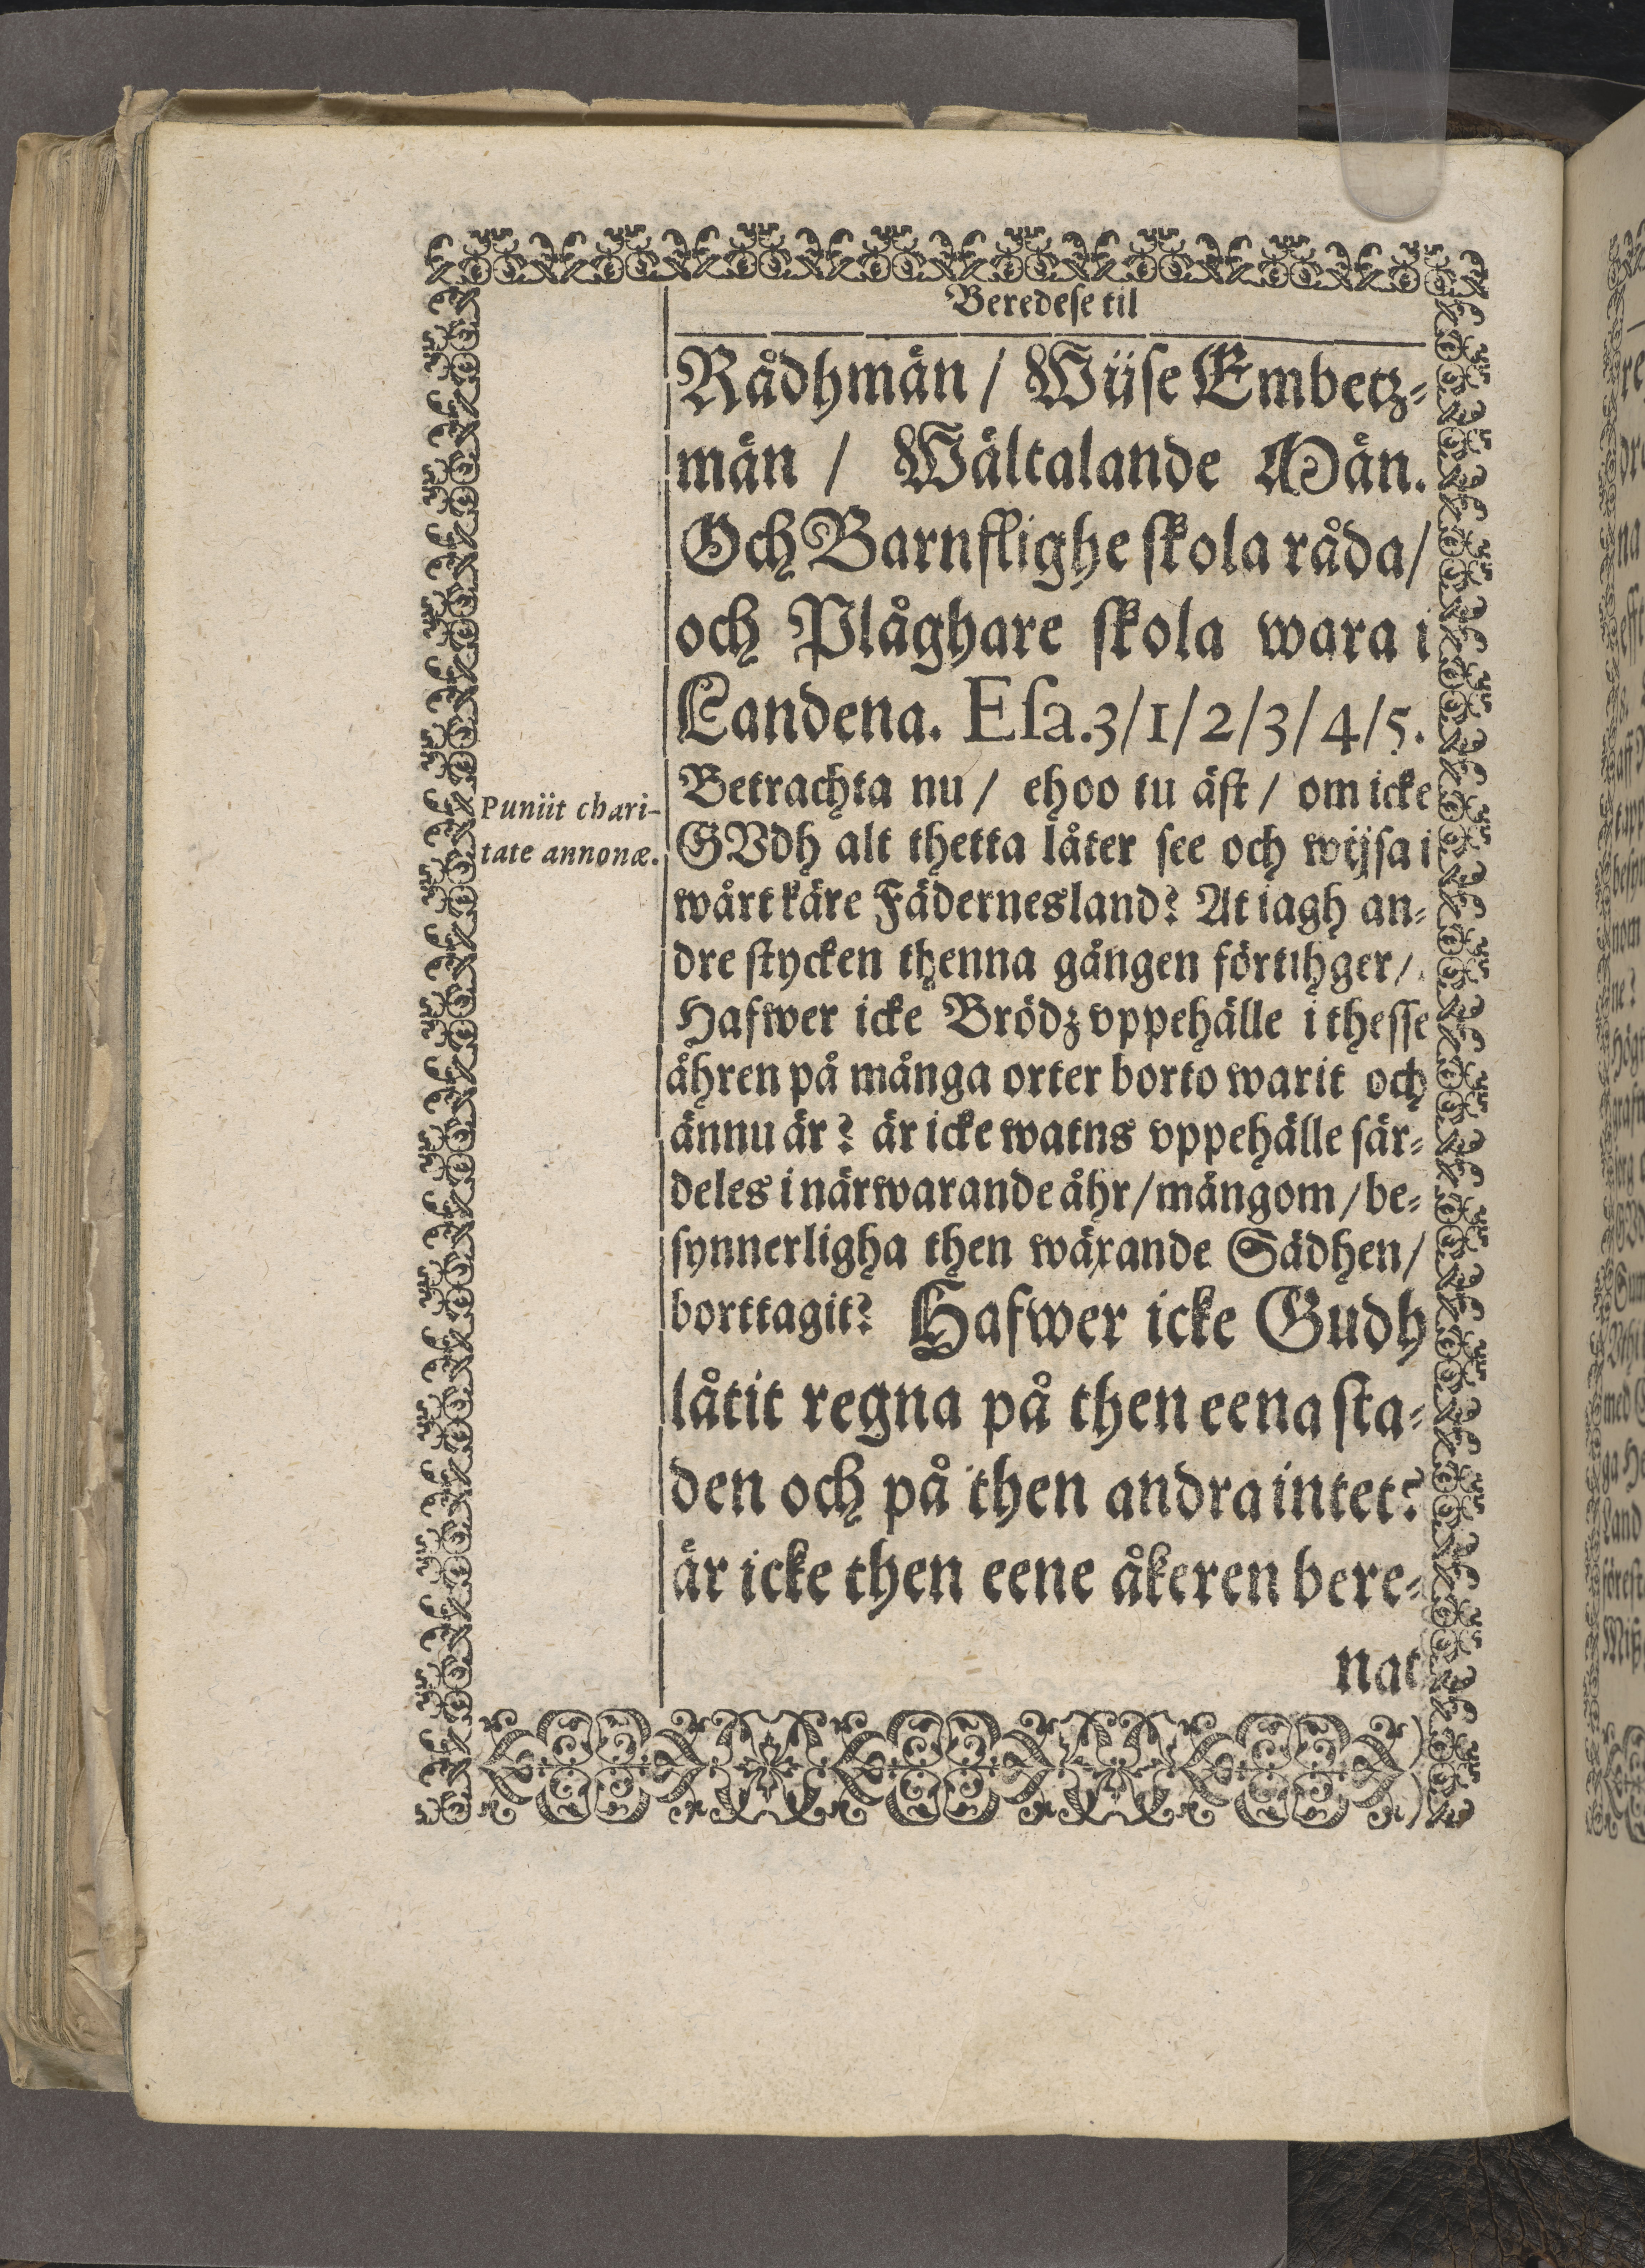 Beredese til
Rådhmän / Wijse Embetz-
män / Wältalande Män.
Och Barnslighe skola råda /
och Plåghare skola wara i
Landena. Esa.3/1/2/3/4/5.
Betrachta nu / ehoo tu äst / om icke
Puniit chari-
GVdh alt thetta låter see och wijsa i
tate annonæ.
wårt käre Fädernesland? At iagh an-
dre stycken thenna gången förtihger /
Hafwer icke Brödz vppehälle i thesse
åhren på många orter borto warit och
ännu är? är icke watns vppehälle sär-
deles i närwarande åhr / mångom / be-
synnerligha then wäxande Sädhen /
borttagit? Hafwer icke Gudh
låtit regna på then eena sta-
den och på then andra intet?
är icke then eene åkeren bere-
nat